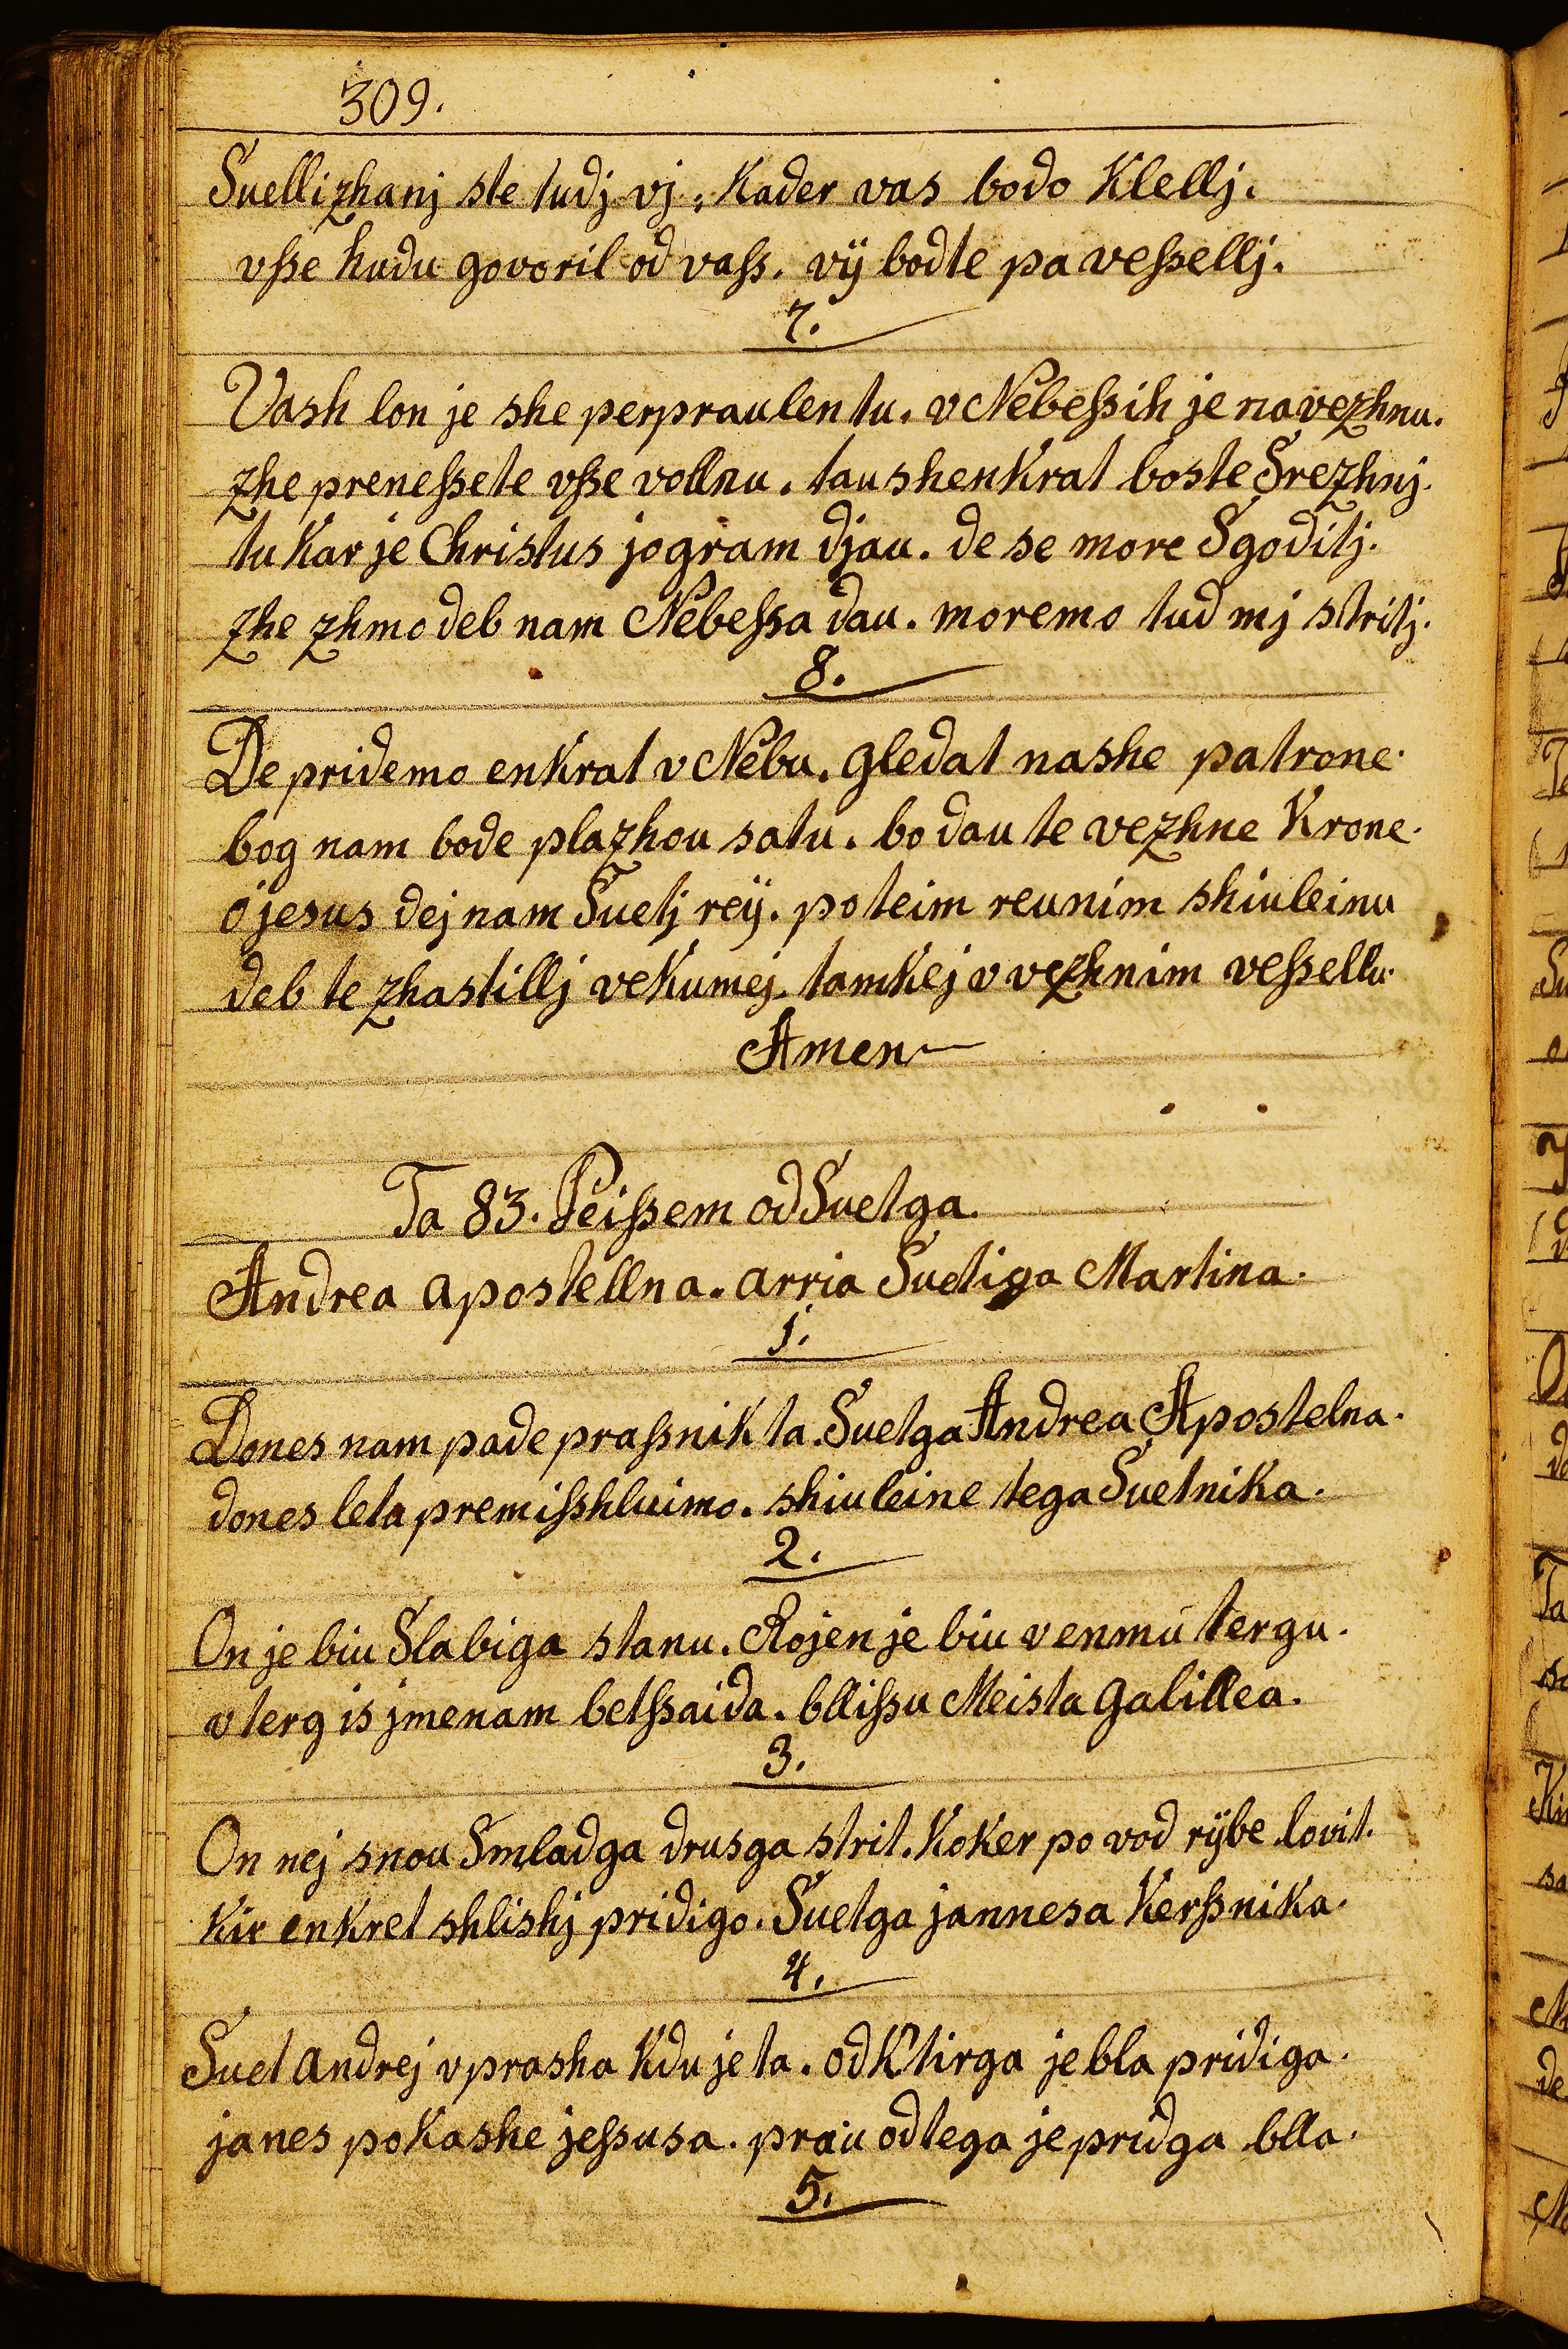 309.
Suellizhanj ste tudj vj, Kader vas bodo Klellj.
vſse hudu govoril od vaſs. vÿ bodte pa veſsellj.
7.
Vash lon je she perpraulen tu. v Nebeſsih je na vezhnu.
zhe preneſsete vſse vollnu. tau shenkrat boste Srezhnj.
tu Kar je Christus jogram djau. de se more Sgoditj.
zhe zhmo deb nam Nebeſsa dau. moremo tud mj stritj.
8.
De pridemo enkrat v Nebu. gledat nashe patrone.
bog nam bode plazhou satu. bo dau te vezhne Krone.
ô jesus dej nam Suetj reÿ. po teim reunim shiuleinu
deb te zhastillj vekumej. tamkej v vezhnim veſsellu.
Amen
Ta 83. Peiſsem od Suetga.
Andrea apostellna. arria Suetiga Martina.
1.
Dones nam pade praſsnik ta. Suetga Andrea Apostelna.
dones leta premiſshluimo. shiuleine tega Suetnika.
2.
On je biu Slabiga stanu. Rojen je biu venmu tergu.
v terg is jmenam betſsaida. blliſsu Meista galillea.
3.
On nej snou Smladga drusga strit. Koker po vod rÿbe lovit.
Kir enkret shlishj pridigo. Suetga jannesa Kerſsnika.
4.
Suet andrej vprasha Kdu je ta. od Ktirga je bla pridiga.
janes pokashe jeſsusa. prau od tega je pridga blla.
5.